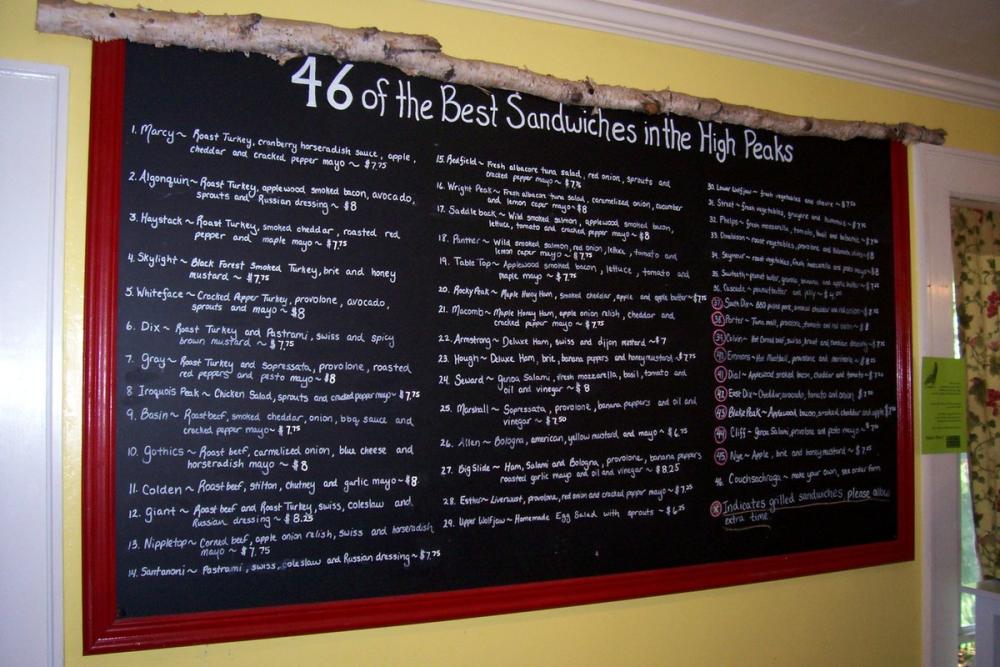 46 of the Best Sandwiches in the High Peaks
1. Marcy ~ Roast Turkey, cranberry horseradish sauce, apple,
cheddar and cracked pepper mayo ~ $7.75
2. Algonquin ~ Roast Turkey, applewood smoked bacon, avocado,
sprouts and Russian dressing ~ $8
3. Haystack ~ Roast Turkey, smoked cheddar, roasted red
pepper and maple mayo ~ $7.75
4. Skylight ~ Black Forest Smoked Turkey, brie and honey
mustard ~ $7.75
5. Whiteface ~ Cracked Pepper Turkey, provolone, avocado,
sprouts and mayo ~ $8
6. Dix ~ Roast Turkey and Pastrami, swiss and spicy
brown mustard ~ $7.75
7. Gray ~ Roast Turkey and Sopressata, provolone, roasted
red peppers and pesto mayo ~ $8
8 Iroquois Peak ~ Chicken Salad, sprouts and cracked pepper mayo ~ $7.75
9. Basin ~ Roast beef, smoked cheddar, onion, bbq sauce and
cracked pepper mayo ~ $7.75
10. Gothics ~ Roast beef, carmelized onion, blue cheese and
horseradish mayo ~ $8
11. Colden ~ Roast beef, stilton, chutney and garlic mayo ~ $8
12. Giant ~ Roast beef and Roast Turkey, swiss, coleslaw and
Russian dressing ~ $8.25
13. Nippletop ~ Corned beef, apple onion relish, swiss and horseradish
mayo ~ $7.75
14. Santanoni ~ Pastrami, swiss, coleslaw and Russian dressing ~ $7.75
15. Redfield ~ Fresh albacore tuna salad, red onion, sprouts and
cracked pepper mayo ~ $7.75
16. Wright Peak ~ Fresh albacore tuna salad, caramelized onion, cucumber
and lemon caper mayo ~ $8
17. Saddleback ~ Wild smoked salmon, applewood smoked bacon,
lettuce, tomato and cracked pepper mayo ~ $8
18. Panther ~ Wild smoked salmon, red onion, lettuce, tomato and
lemon caper mayo ~ $7.75
19. Table Top ~ Applewood smoked bacon, lettuce, tomato and
maple mayo ~ $7.75
20. Rocky Peak ~ Maple Honey Ham, smoked cheddar, apple and apple butter ~ $7.75
21. Macomb ~ Maple Honey Ham, apple onion relish, cheddar and
cracked pepper mayo ~ $7.75
22. Armstrong ~ Deluxe Ham, swiss and dijon mustard ~ $7
23. Hough ~ Deluxe Ham, brie, banana peppers and honey mustard ~ $7.75
24. Seward ~ Genoa Salami, fresh mozzarella, basil, tomato and
oil and vinegar ~ $8
25. Marshall ~ Sopressata, provolone, banana peppers and oil and
vinegar ~ $7.50
26. Allen ~ Bologna, american, yellow mustard, and mayo ~ $6.75
27. Big Slide ~ Ham, Salami and Bologna, provolone, banana peppers
roasted garlic mayo and oil and vinegar ~ $8.25
28. Esther ~ Liverwurst, provolone, red onion and cracked pepper mayo ~ $7.25
29. Upper Wolfjaw ~ Homemade Egg Salad with sprouts ~ $6.25
30. Lower Wolfjaw ~ fresh vegetables and
31. Street ~ fresh vegetables, gruyere and hummus ~
32. Phelps ~ fresh mozzarella, tomato, basil and
33. Donaldson ~ roast vegetables, provolone and
34. Seymour ~ roast vegetables, fresh mozzarella and pesto mayo ~
35. Sawteeth ~ peanut butter, granola, banana and
36. Cascade ~ peanut butter and jelly ~
37. South Dix ~ BBQ pulled pork, smoked cheddar and red onion
38. Porter ~ Tuna melt, provolone, tomato and red onion ~ $8
39. Colvin ~ Hot Corned beef, swiss, kraut and russian dressing
40. Emmons ~ Hot Meatball, provolone and marinara ~
41. Dial ~ Applewood smoked bacon, cheddar and tomato ~
42. East Dix ~ Cheddar, avocado, tomato and onion ~
43. Blake Peak ~ Applewood bacon, smoked cheddar and apple
44. Cliff ~ Genoa Salami, provolone and pesto mayo ~
45. Nye ~ Apple, brie and honey mustard ~ $7.25
46. Couchsachraga ~ make your own, see order form
* Indicates grilled sandwiches please allow
extra time.